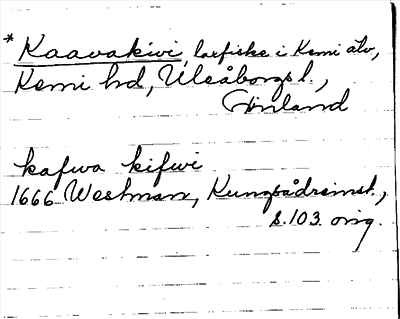 * Kaavakivi, laxfiske i Kemi älv,
Kemi hd, Uleåborgs l.,
Finland
kafwa kifwi
1666 Westman, Kungsådreinst.,
s. 103. orig.